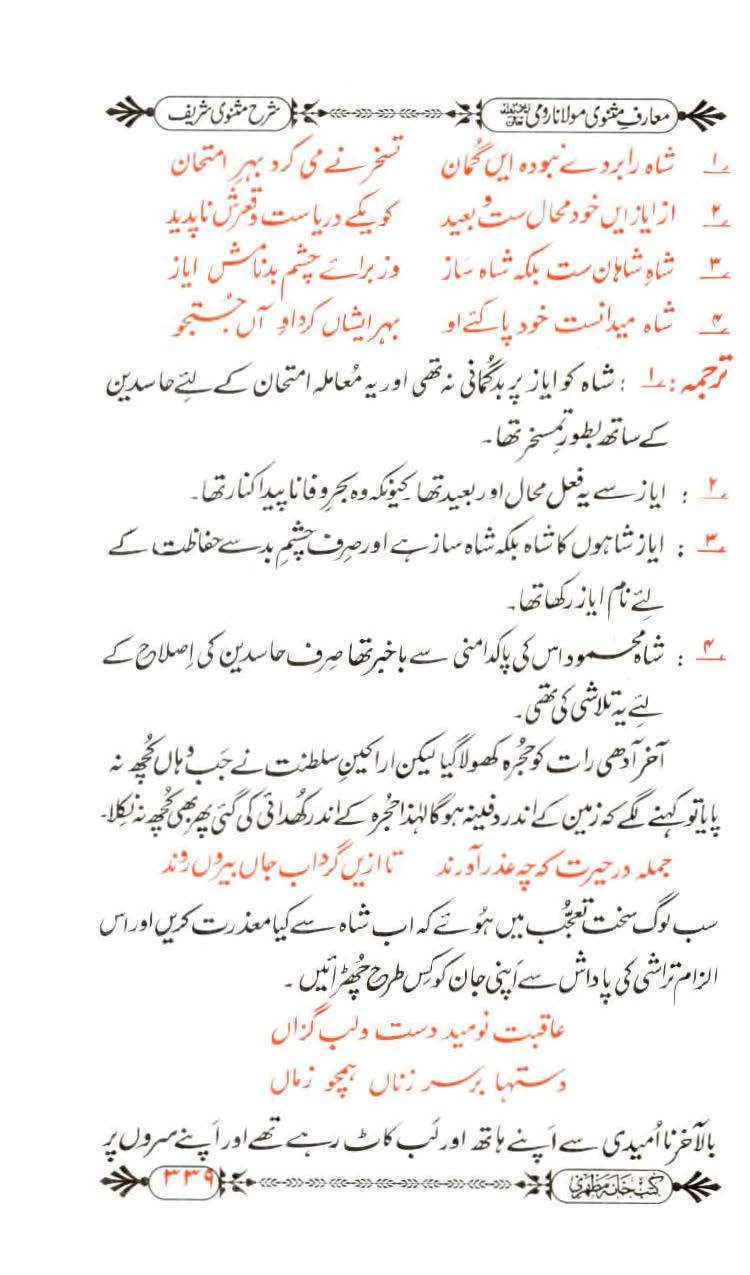 معارفِ مثنوی مولانا رومی شرح مثنوی شریف
۱ شاہ را بر دے نبودہ ایں گُمان تسخرنے می کرد بہرِ امتحان
۲ از ایاز ایں خود محال ست و بعید کو یکے دریاست و قعرش ناپدید
۳ شاہِ شاہان ست بلکہ شاہ سَاز وز برائے چشمِ بد نامش ایاز
۴ شاہ میدانست خود پاکئے او بہر ایشاں کرد او آں جُستجو
ترجمہ: ۱ : شاہ کو ایاز پر بدگُمانی نہ تھی اور یہ مُعاملہ امتحان کے لئے حاسدین
کے ساتھ بطورِ تمسخر تھا۔
۲ : ایاز سے یہ فعل محال اور بعید تھا کیونکہ وہ بحرِ وفا ناپیدا کنار تھا۔
۳ : ایاز شاہوں کا شاہ بلکہ شاہ ساز ہے اور صِرف چشمِ بد سے حفاظت کے
لئے نام ایاز رکھا تھا۔
۴ : شاہ محمود اس کی پاکدامنی سے باخبر تھا صِرف حاسدین کی اِصلاح کے
لئے یہ تلاشی کی تھی۔
آخر آدھی رات کو حُجرہ کھولا گیا لیکن اراکینِ سلطنت نے جَب وہاں کُچھ نہ
پایا تو کہنے لگے کہ زمین کے اندر دفینہ ہوگا لہٰذا حجرہ کے اندر کھُدائی کی گئی پھر بھی کُچھ نہ نِکلا۔
جملہ در حیرت کہ چہ عذر آورند تا ازیں گرداب جاں بیروں روند
سب لوگ سخت تعجُّب میں ہُوئے کہ اب شاہ سے کیا معذرت کریں اور اس
الزام تراشی کی پاداش سے اَپنی جان کو کِس طرح چُھڑائیں ۔
عاقبت نومید دست و لب گزاں
دستہا بر سر زناں ہمچو زماں
بالآخر نا اُمیدی سے اَپنے ہاتھ اور لَب کاٹ رہے تھے اور اَپنے سروں پر
کتب خانہ مظہری ۳۳۹